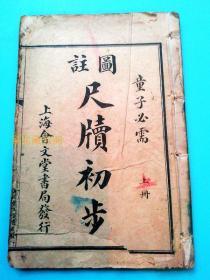 童子必需
上冊
圖註
尺牘初步
上海會文堂書局發行